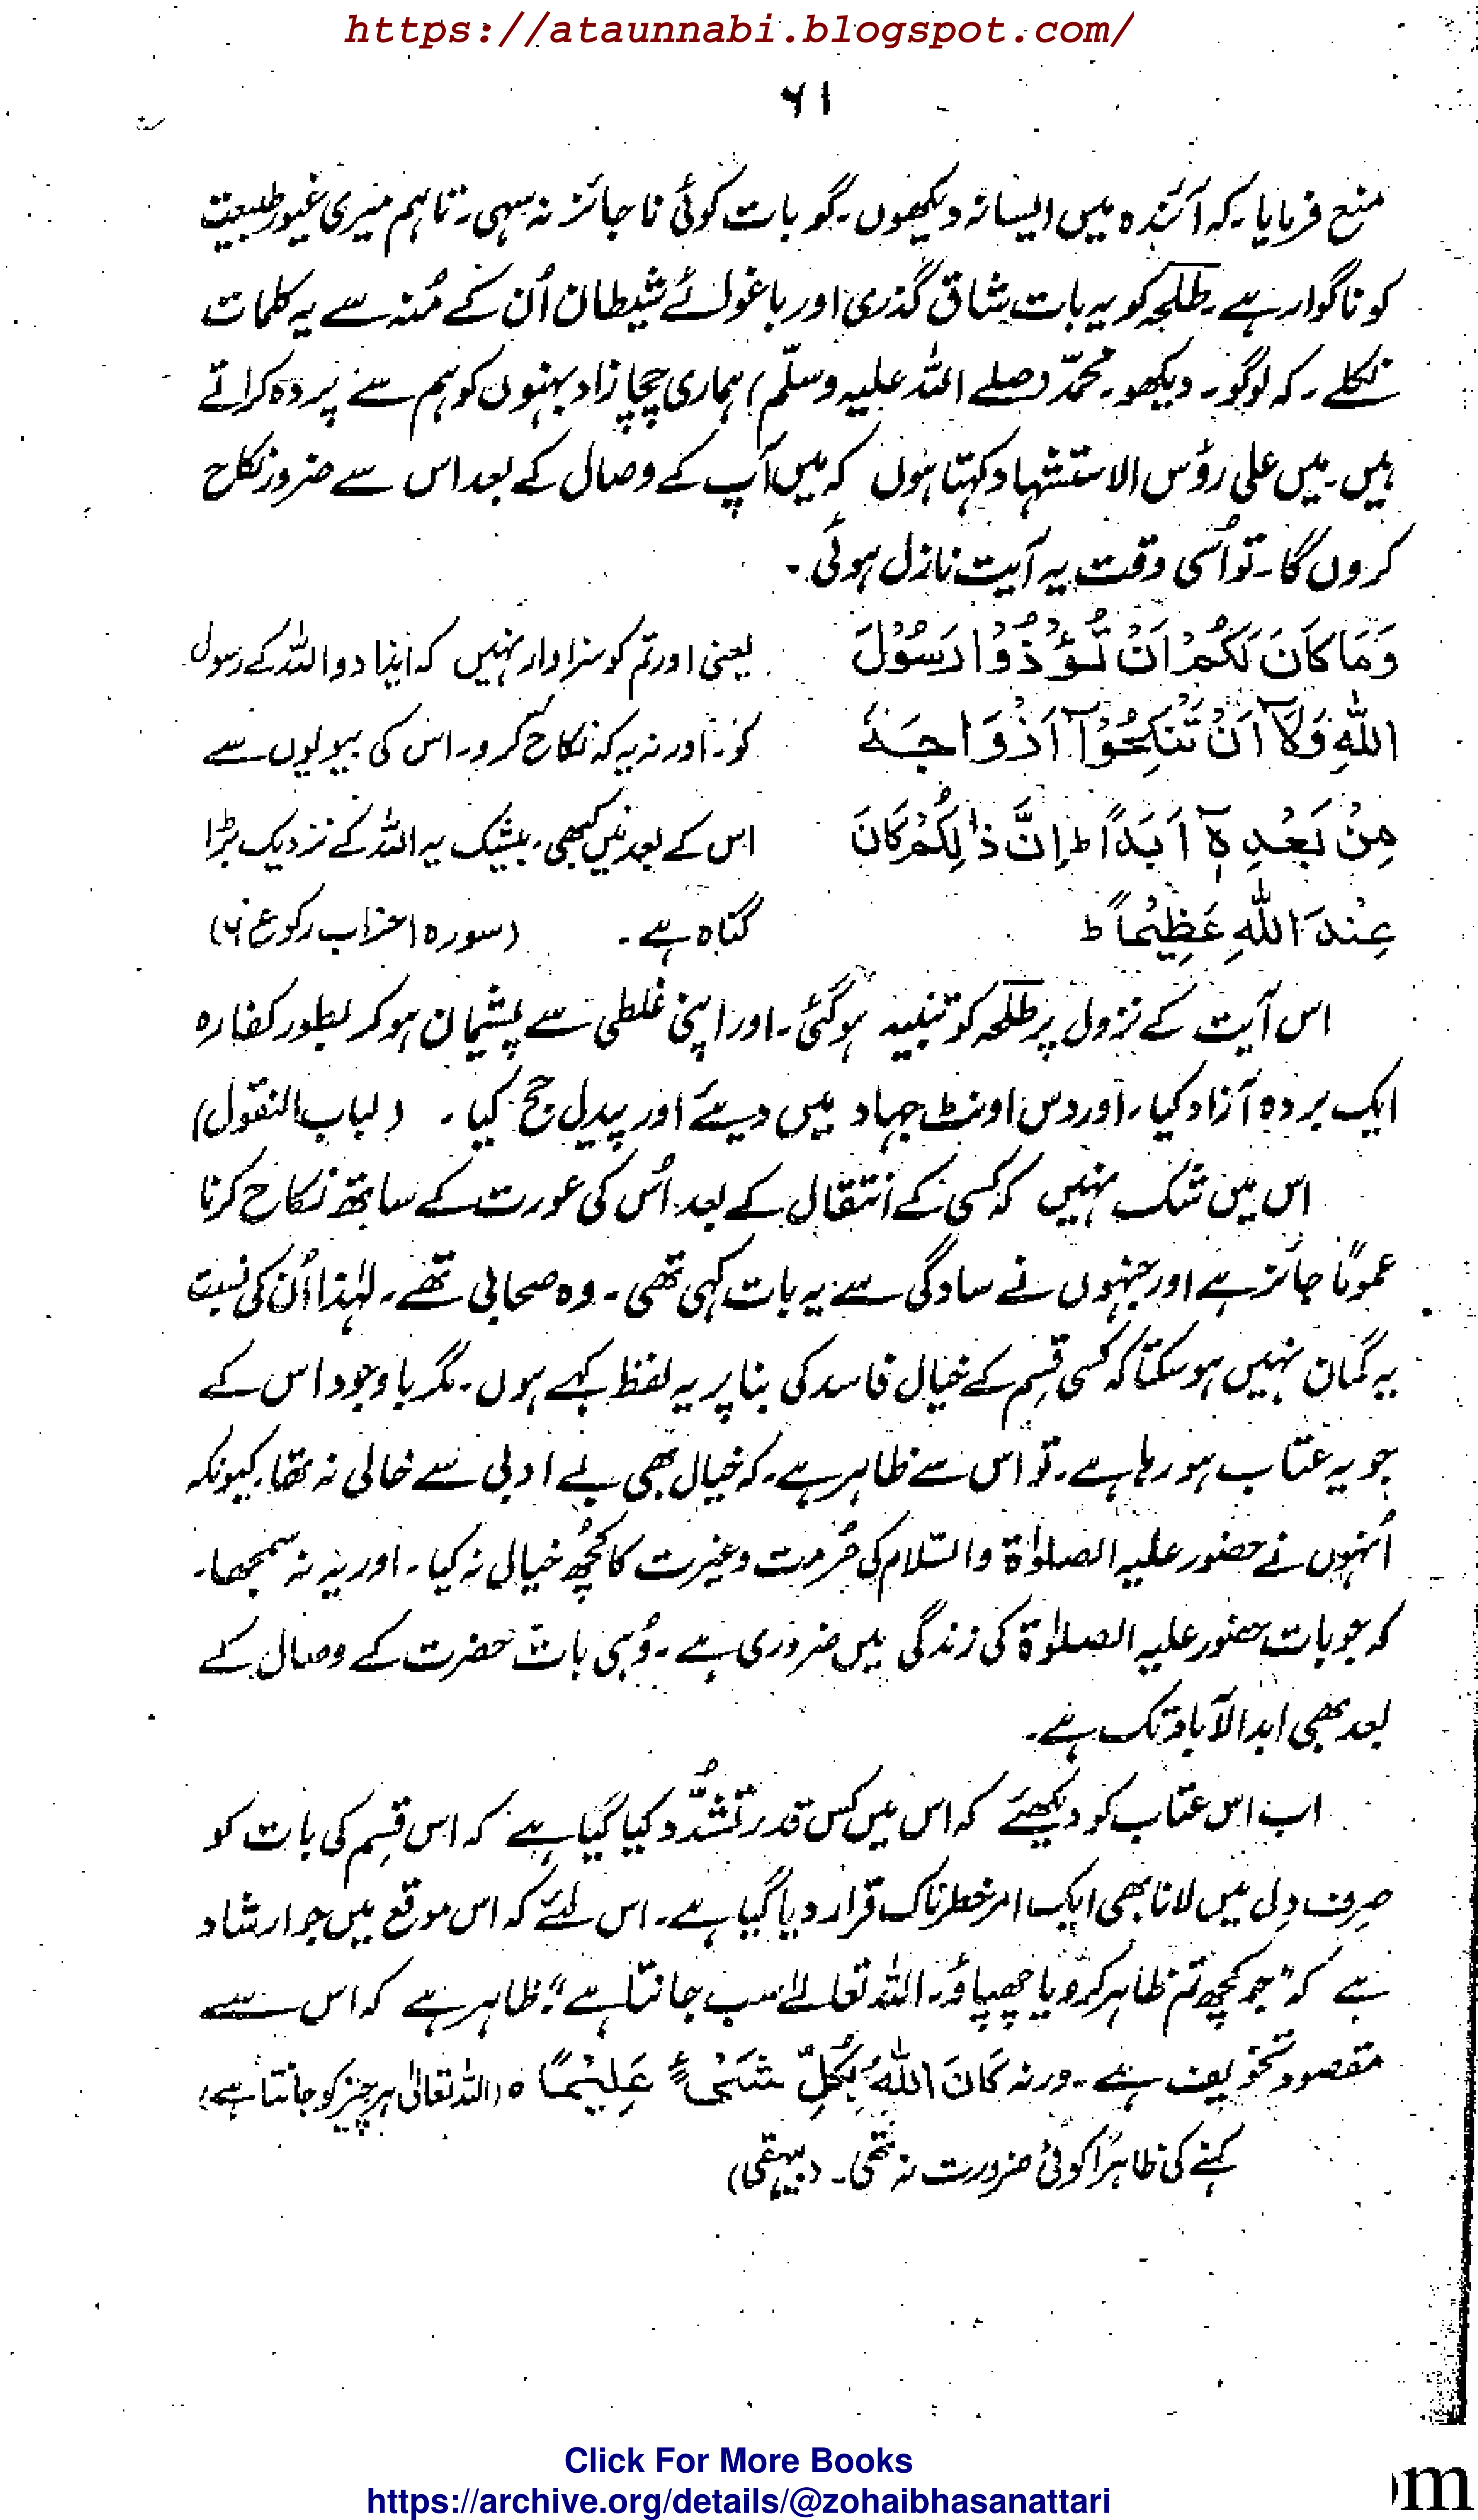 https://ataunnabi.blogspot.com/
۶۱
منع فرمایا۔ کہ آئندہ میں ایسا نہ دیکھوں۔ گو بات کوئی ناجائز نہ سہی۔ تاہم میری غیور طبیعت
کو ناگوار ہے۔ طلحہ کو یہ بات شاق گذری اور باغوائے شیطان اُن کے مُنہ سے یہ کلمات
نکلے۔ کہ لوگو۔ دیکھو۔ محمدّ (صلے اللہ علیہ وسلّم) ہماری چچا زاد بہنوں کو ہم سے پردہ کراتے
ہیں۔ میں علی رؤس الاستشہاد کہتا ہوں کہ میں آپ کے وصال کے بعد اس سے ضرور نکاح
کروں گا۔ تو اُسی وقت یہ آیت نازل ہوئی۔
وَمَا كَانَ لَكُمْ اَنْ تُؤْذُوْا رَسُوْلَ یعنی اور تم کو سزاوار نہیں کہ ایذا دو اللہ کے رسول
اللهِ وَلَآ اَنْ تَنْكِحُوْٓا اَزْوَاجَهٗ کو۔ اور نہ یہ کہ نکاح کرو۔ اس کی بیویوں سے
مِنْ بَعْدِهٖٓ اَبَدًا ط اِنَّ ذٰلِكُمْ كَانَ اس کے بعد میں کبھی۔ بیشک یہ اللہ کے نزدیک بڑا
عِنْدَ اللهِ عَظِيْمًا ط گناہ ہے۔ (سورہ احزاب رکوع ۶)
اس آیت کے نزول پر طلحہ کو تنبیہ ہوگئی۔ اور اپنی غلطی سے پشیمان ہوکر بطور کفارہ
ایک بردہ آزاد کیا۔ اور دس اونٹ جہاد میں دیئے اور پیدل حج کیا۔ (لباب النقول)
اس میں شک نہیں کہ کسی کے انتقال کے بعد اُس کی عورت کے ساتھ نکاح کرنا
عموماً جائز ہے اور جنہوں نے سادگی سے یہ بات کہی تھی۔ وہ صحابی تھے۔ لہٰذا اُن کی نسبت
یہ گمان نہیں ہوسکتا کہ کسی قسم کے خیال فاسد کی بنا پر یہ لفظ کہے ہوں۔ مگر باوجود اس کے
جو یہ عتاب ہو رہا ہے۔ تو اس سے ظاہر ہے۔ کہ خیال بھی بے ادبی سے خالی نہ تھا۔ کیونکہ
اُنہوں نے حضور علیہ الصلوٰة والسّلام کی حُرمت وغیرت کا کچھ خیال نہ کیا۔ اور یہ نہ سمجھا۔
کہ جو بات حضور علیہ الصلوٰة کی زندگی میں ضروری ہے۔ وُہی بات حضرت کے وصال کے
بعد بھی ابد الآباد تک ہے۔
اب اس عتاب کو دیکھئے کہ اس میں کس قدر تشدُّد کیا گیا ہے کہ اس قسم کی بات کو
صرف دل میں لانا بھی ایک امر خطرناک قرار دیا گیا ہے۔ اس لئے کہ اس موقع میں جو ارشاد
ہے کہ "جو کچھ تم ظاہر کرو یا چھپاؤ۔ اللہ تعالےٰ سب جانتا ہے"۔ ظاہر ہے کہ اس سے
مقصود تخویف ہے۔ ورنہ كَانَ اللهُ بِكُلِّ شَيْءٍ عَلِيْمًا ه (اللہ تعالیٰ ہر چیز کو جانتا ہے)
کہنے کی ظاہراً کوئی ضرورت نہ تھی۔ (بیہقی)
Click For More Books
https://archive.org/details/@zohaibhasanattari
om